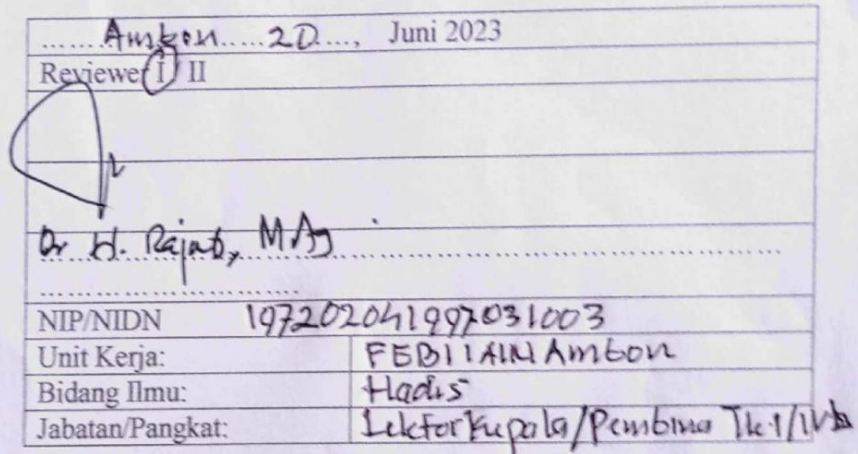 Ambon 20, Juni 2023
Reviewer I II
Dr H. Rajab, M.Ag
NIP/NIDN 197202041997031003
Unit Kerja: FEBI IAIN Ambon
Bidang Ilmu: Hadis
Jabatan/Pangkat: Lektor Kepala/Pembina Tk.1/IVb